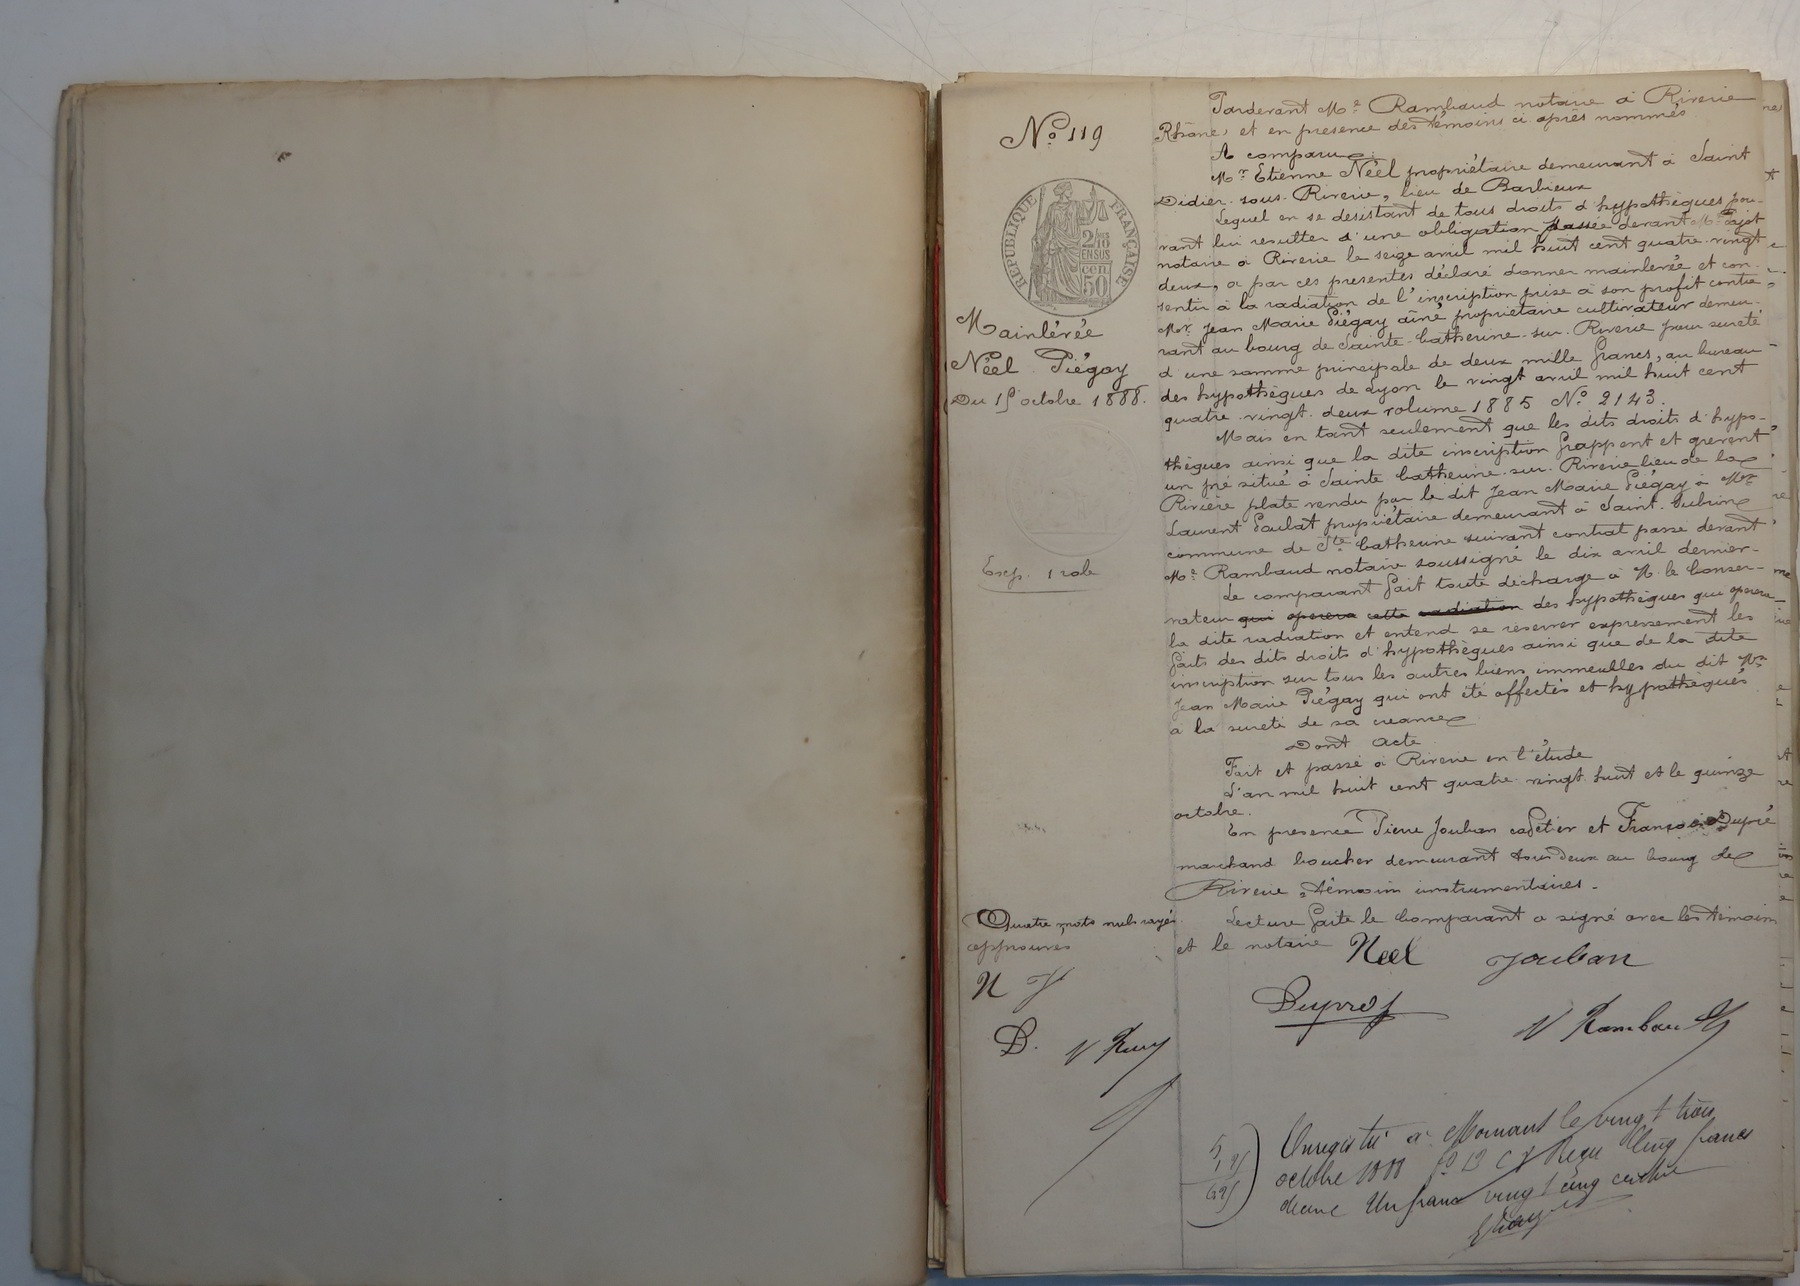 N° 119
RÉPUBLIQUE FRANÇAISE
2/10
EN SUS
cen
50
Mainlevée
Néel Piégay
Du 15 octobre 1888.
Exp. 1 role
Pardevant Me Rambaud notaire à Riverie
Rhône, et en presence des témoins ci après nommés
A comparu
Mr Etienne Néel propriétaire demeurant à Saint
Didier-sous-Riverie, lieu de Barbieux
Lequel en se desistant de tous droits d'hypothèques pou-
vant lui resulter d'une obligation passée devant Me
notaire à Riverie le seize avril mil huit cent quatre-vingt
deux, a par ces presentes déclaré donner mainlevée et con-
sentir à la radiation de l'inscription prise à son profit contre
Mr Jean Marie Piégay ainé propriétaire cultivateur demeu-
rant au bourg de Sainte-Catherine-sur-Riverie pour sureté
d'une somme principale de deux mille francs, au bureau
des hypothèques de Lyon le vingt avril mil huit cent
quatre-vingt-deux volume 1885 N° 2143.
Mais en tant seulement que les dits droits d'hypo-
thèques ainsi que la dite inscription frappent et grevent
un pré situé à Sainte Catherine-sur-Riverie lieu de la
Rivière plate vendu par le dit Jean Marie Piégay à Mr
Laurent Goulat propriétaire demeurant à Saint-
commune de Ste Catherine suivant contrat passé devant
Me Rambaud notaire soussigné le dix avril dernier-
Le comparant fait toute décharge à M. le Conser-
vateur qui operera cette radiation des hypothèques que operera
la dite radiation et entend se réserver expressement les
faits des dits droits d'hypothèques ainsi que de la dite
inscription sur tous les autres biens immeubles du dit Mr
Jean Marie Piégay qui ont été affectés et hypothèqués
à la sureté de sa creance
Dont acte
Fait et passé à Riverie en l'étude
L'an mil huit cent quatre-vingt-huit et le quinze
octobre.
En presence Pierre Jouban cafetier et François Dupré
marchand boucher demeurant tous deux au bourg de
Riverie, témoins instrumentaires-
Lecture faite le Comparant a signé avec les témoins
et le notaire
Neel Jouban
Quatre mots nuls rayés
approuvés
N J
D.
Dupré f
V Rambaud
Enregistré à Mornant le vingt trois
octobre 1888 f° 19 C Reçu Cinq francs
decime Un franc vingt cinq centimes